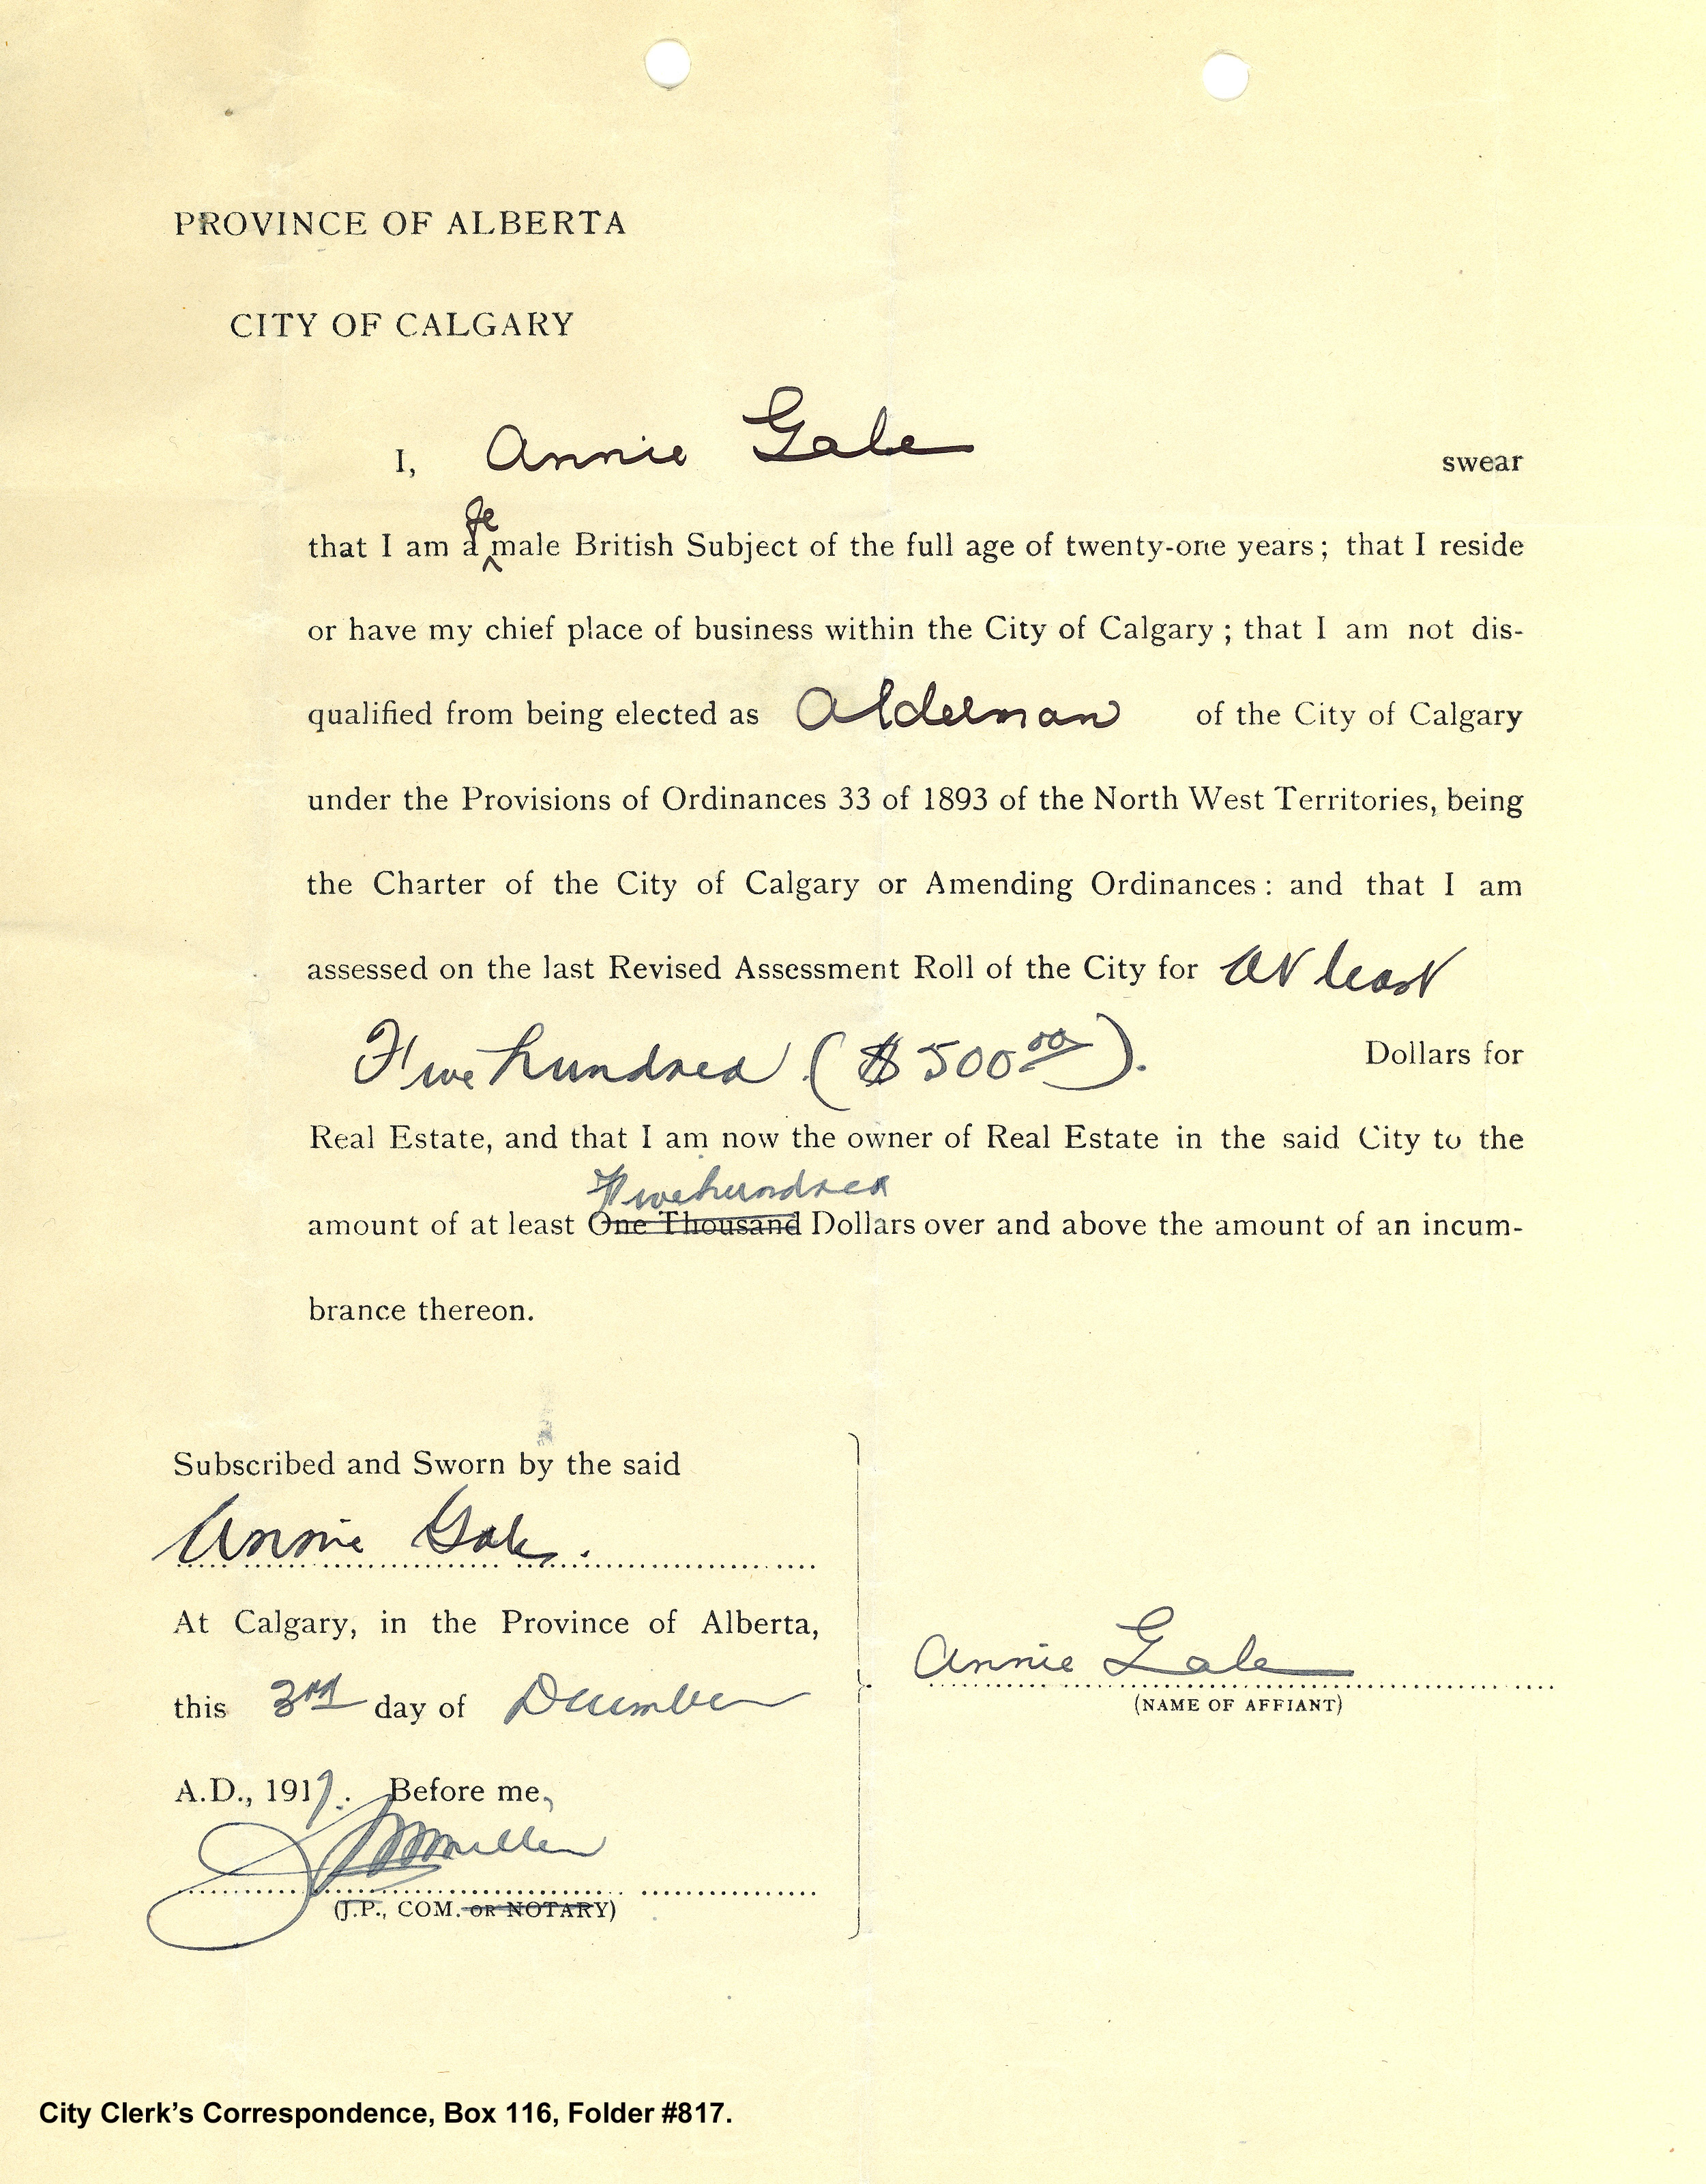 PROVINCE OF ALBERTA
CITY OF CALGARY
I, Annie Gale swear
fe
that I am a male British Subject of the full age of twenty-one years; that I reside
or have my chief place of business within the City of Calgary; that I am not dis-
qualified from being elected as Alderman of the City of Calgary
under the Provisions of Ordinances 33 of 1893 of the North West Territories, being
the Charter of the City of Calgary or Amending Ordinances: and that I am
assessed on the last Revised Assessment Roll of the City for at least
Five hundred ($500.00). Dollars for
Real Estate, and that I am now the owner of Real Estate in the said City to the
Five hundred
amount of at least One Thousand Dollars over and above the amount of an incum-
brance thereon.
Subscribed and Sworn by the said
Annie Gale.
At Calgary, in the Province of Alberta,
this 3rd day of December
A.D., 1917. Before me,
Miller
(J.P., COM. OR NOTARY)
Annie Gale
(NAME OF AFFIANT)
City Clerk's Correspondence, Box 116, Folder #817.